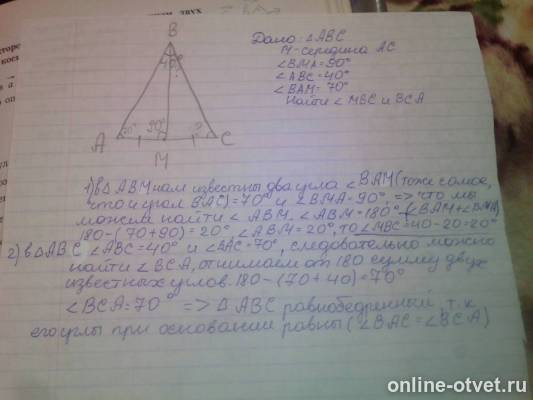 B
40°
?
70°
90°
?
A
C
M
Дано: △ABC
M-середина AC
∠BMA=90°
∠ABC=40°
∠BAM=70°
Найти ∠MBC и BCA
1) в△ABM нам известны два угла ∠BAM (тоже самое,
что и угол BAC)=70° и ∠BMA=90°, => что мы
можем найти ∠ABM. ∠ABM=180°-(∠BAM+∠BMA)
180-(70+90)=20° ∠ABM=20°, то ∠MBC=40-20=20°
2) в△ABC ∠ABC=40° и ∠BAC=70°, следовательно можно
найти ∠BCA, отнимаем от 180 сумму двух
известных углов. 180-(70+40)=70°
∠BCA=70° => △ABC равнобедренный, т.к.
его углы при основании равны (∠BAC=∠BCA)
online-otvet.ru